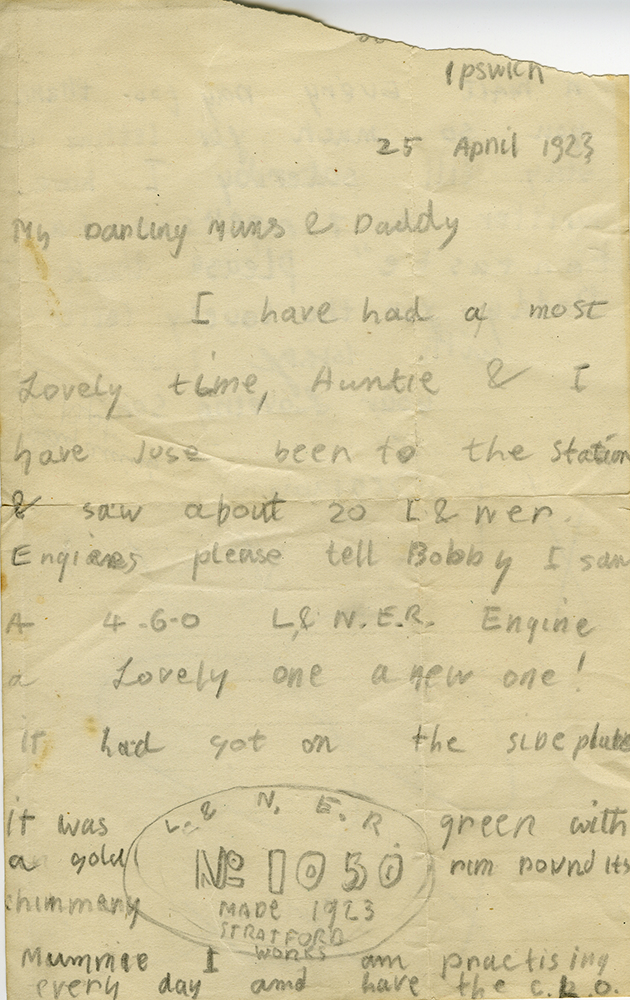 Ipswich
25 April 1923
My Darling Mums & Daddy
I have had a most
Lovely time, Auntie & I
have juse been to the Station
& saw about 20 L & ner.
Engines please tell Bobby I saw
A 4-6-0 L& N.E.R. Engine
a Lovely one a new one!
it had got on the side plate
L & N. E. R
No 1050
MADE 1923
STRATFORD
WORKS
it was green with
a gold rim round its
chimmany
Mummie I am practising
every day and have the